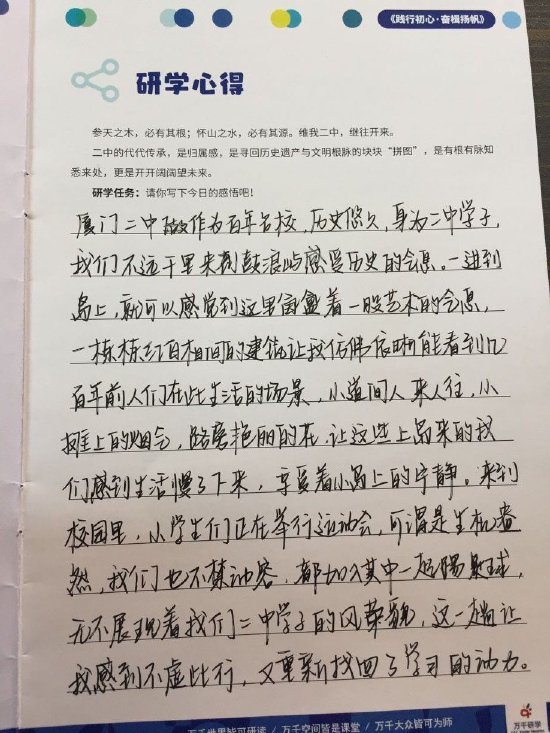 《践行初心·奋楫扬帆》
研学心得
参天之木，必有其根；怀山之水，必有其源。维我二中，继往开来。
二中的代代传承，是归属感，是寻回历史遗产与文明根脉的块块“拼图”，是有根有脉知
悉来处，更是开开阔阔望未来。
研学任务：请你写下今日的感悟吧！
厦门二中作为百年名校，历史悠久，身为二中学子，
我们不远千里来到鼓浪屿感受历史的气息。一进到
岛上，就可以感觉到这里富含着一股艺术的气息，
一栋栋红白相间的建筑让我仿佛依晰能看到几
百年前人们在此生活的场景，小道间人来人往，小
摊上的烟气，路旁艳丽的花，让这些上岛来的我
们感到生活慢了下来，享受着小岛上的宁静。来到
校园里，小学生们正在举行运动会，可谓是生机盎
然，我们也不禁动容，都加入其中一起踢足球，
无不展现着我们二中学子的风貌，这一趟让
我感到不虚此行，又重新找回了学习的动力。
万千世界皆可研读 / 万千空间皆是课堂 / 万千大众皆可为师
万千研学